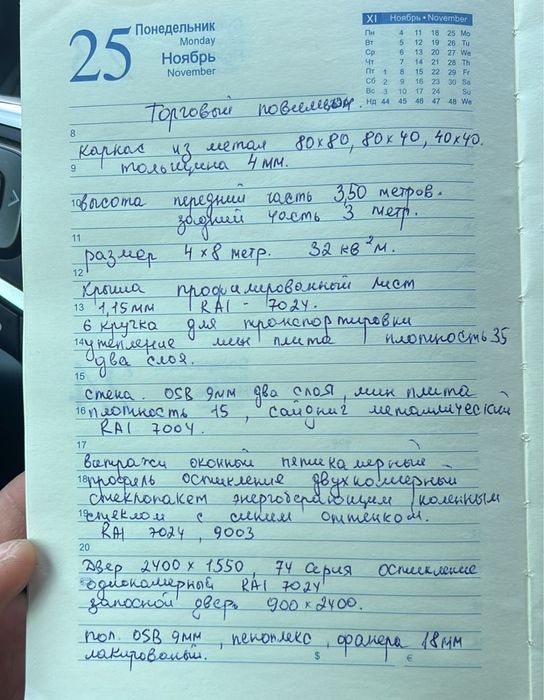 25
Понедельник
Monday
Ноябрь
November
XI Ноябрь • November
Пн 4 11 18 25 Mo
Вт 5 12 19 26 Tu
Ср 6 13 20 27 We
Чт 7 14 21 28 Th
Пт 1 8 15 22 29 Fr
Сб 2 9 16 23 30 Sa
Вс 3 10 17 24 Su
Нд 44 45 46 47 48 We
Торговый
8
каркас из метал 80х80, 80х40, 40х40.
9 толщина 4мм.
10 высота передний часть 3,50 метров.
задний часть 3 метр.
11
размер 4х8 метр. 32 кв²м.
12
Крыша профилированный лист
13 1,15мм RAl - 7024.
6 кручка для транспортировки
14 утепление мин плита плотность 35
два слоя.
15
стена. OSB 9мм два слоя, мин плита
16 плотность 15, сайдинг металлический
RAl 7004.
17
витражи оконный пятикамерный
18 профель остекление двухкамерный
стеклопакем энергоберающим каленным
19 стеклом с синим оттенком.
RAl 7024, 9003
20
Двер 2400 х 1550, 74 серия остекление
однокамерный RAl 7024
запосной дверь 900 х 2400.
пол. OSB 9мм, пеноплекс, фанера 18мм
лакированый. $ €